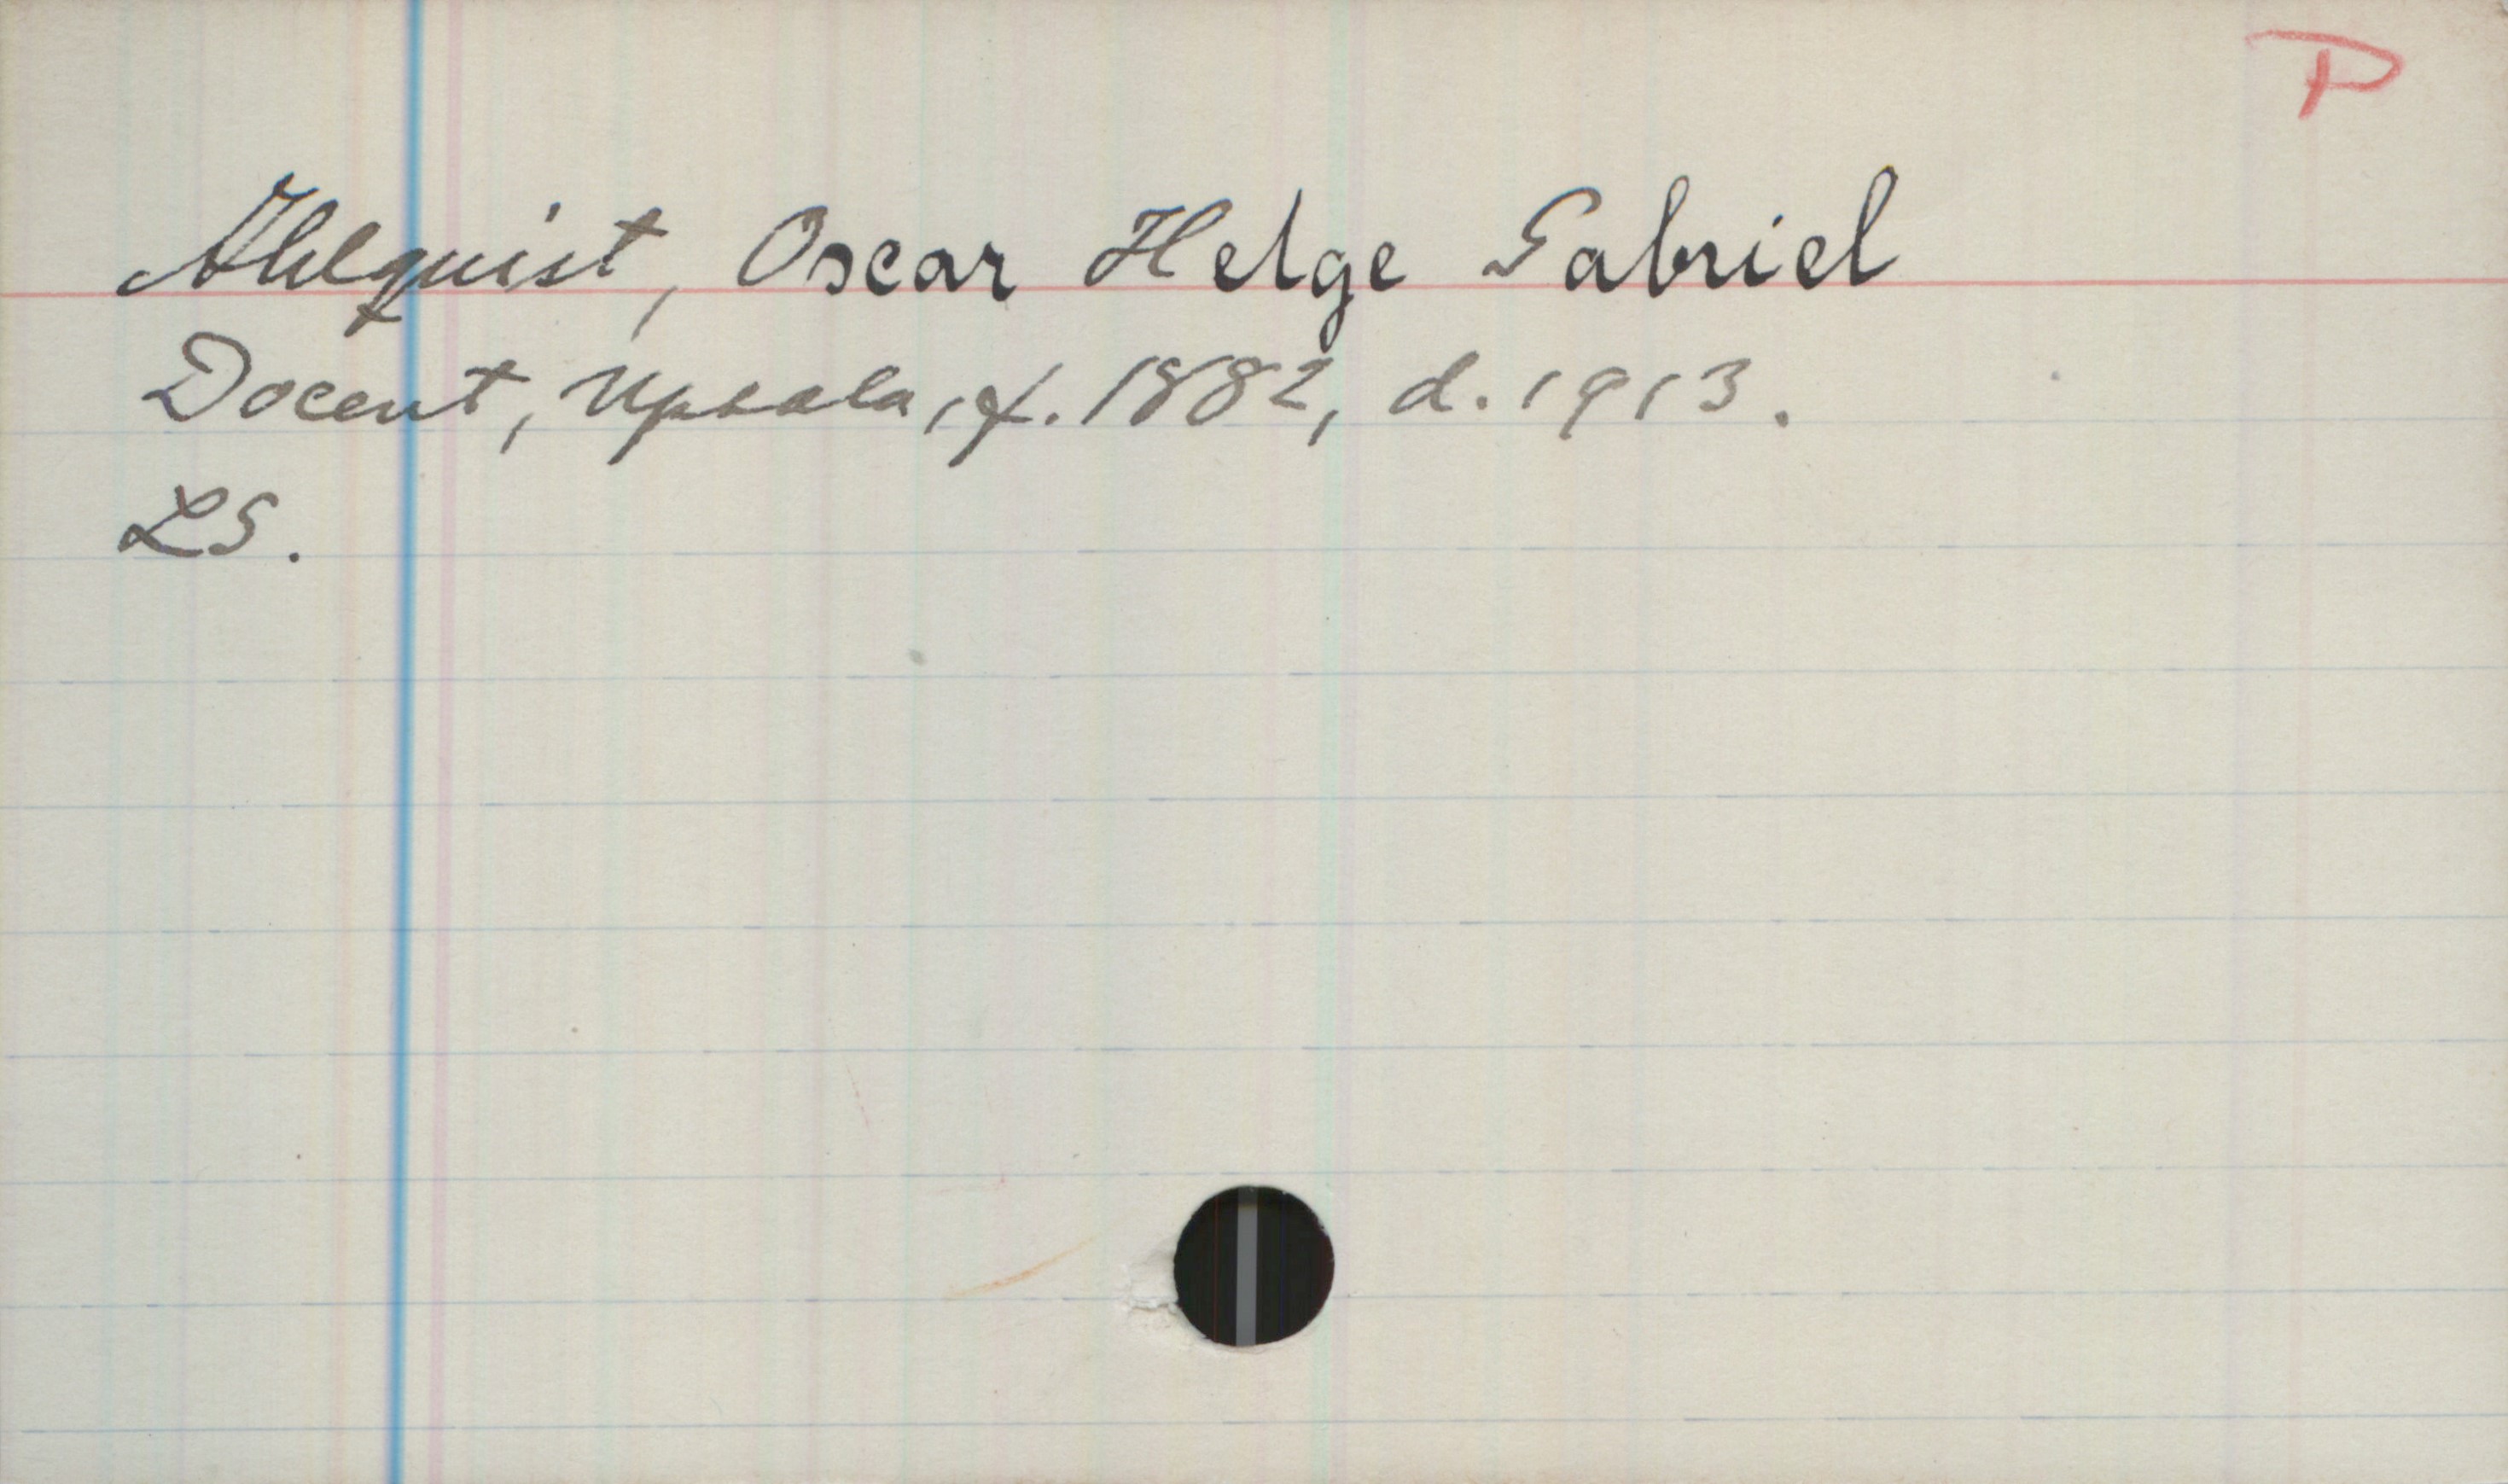 P
Ahlquist, Oscar Helge Gabriel
Docent, Upsala, f. 1882, d. 1913.
LS.